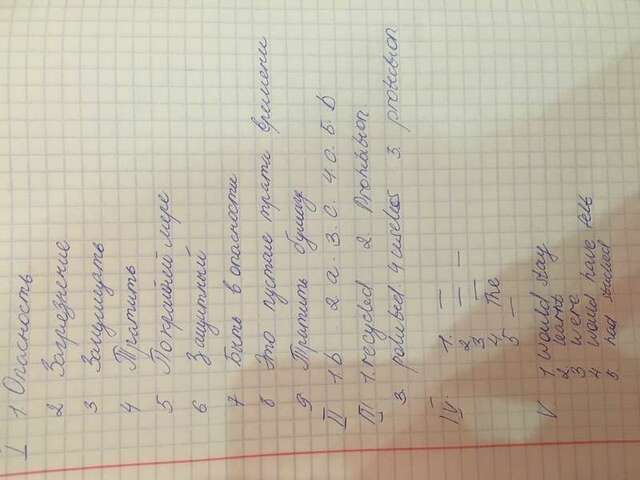 I 1. Опасность
2 Загрязнение
3 Защищать
4 Тратить
5 Покрайней мере
6 Защитный
7 Быть в опасности
8 Это пустая трата времени
9 Тратить бумагу
II 1. b 2 a. 3. c. 4 c. 5. b
III 1. recycled 2. Prohibition
3. polluted 4 useless 3. prohibition
IV. 1. —
2 — —
3 —
4. The
5 —
V 1. would stay
2 learns
3 were
4 would have felt
5. had studied